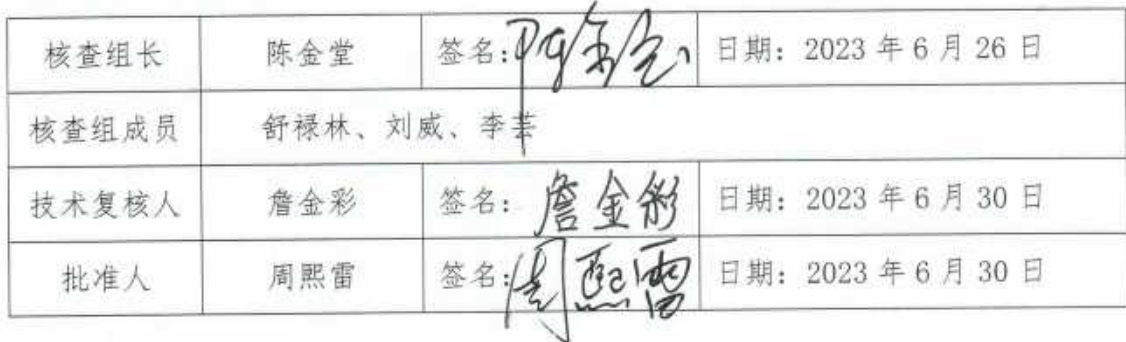 核查组长 陈金堂 签名：陈金堂 日期：2023 年 6 月 26 日
核查组成员 舒禄林、刘威、李芸
技术复核人 詹金彩 签名：詹金彩 日期：2023 年 6 月 30 日
批准人 周熙雷 签名：周熙雷 日期：2023 年 6 月 30 日